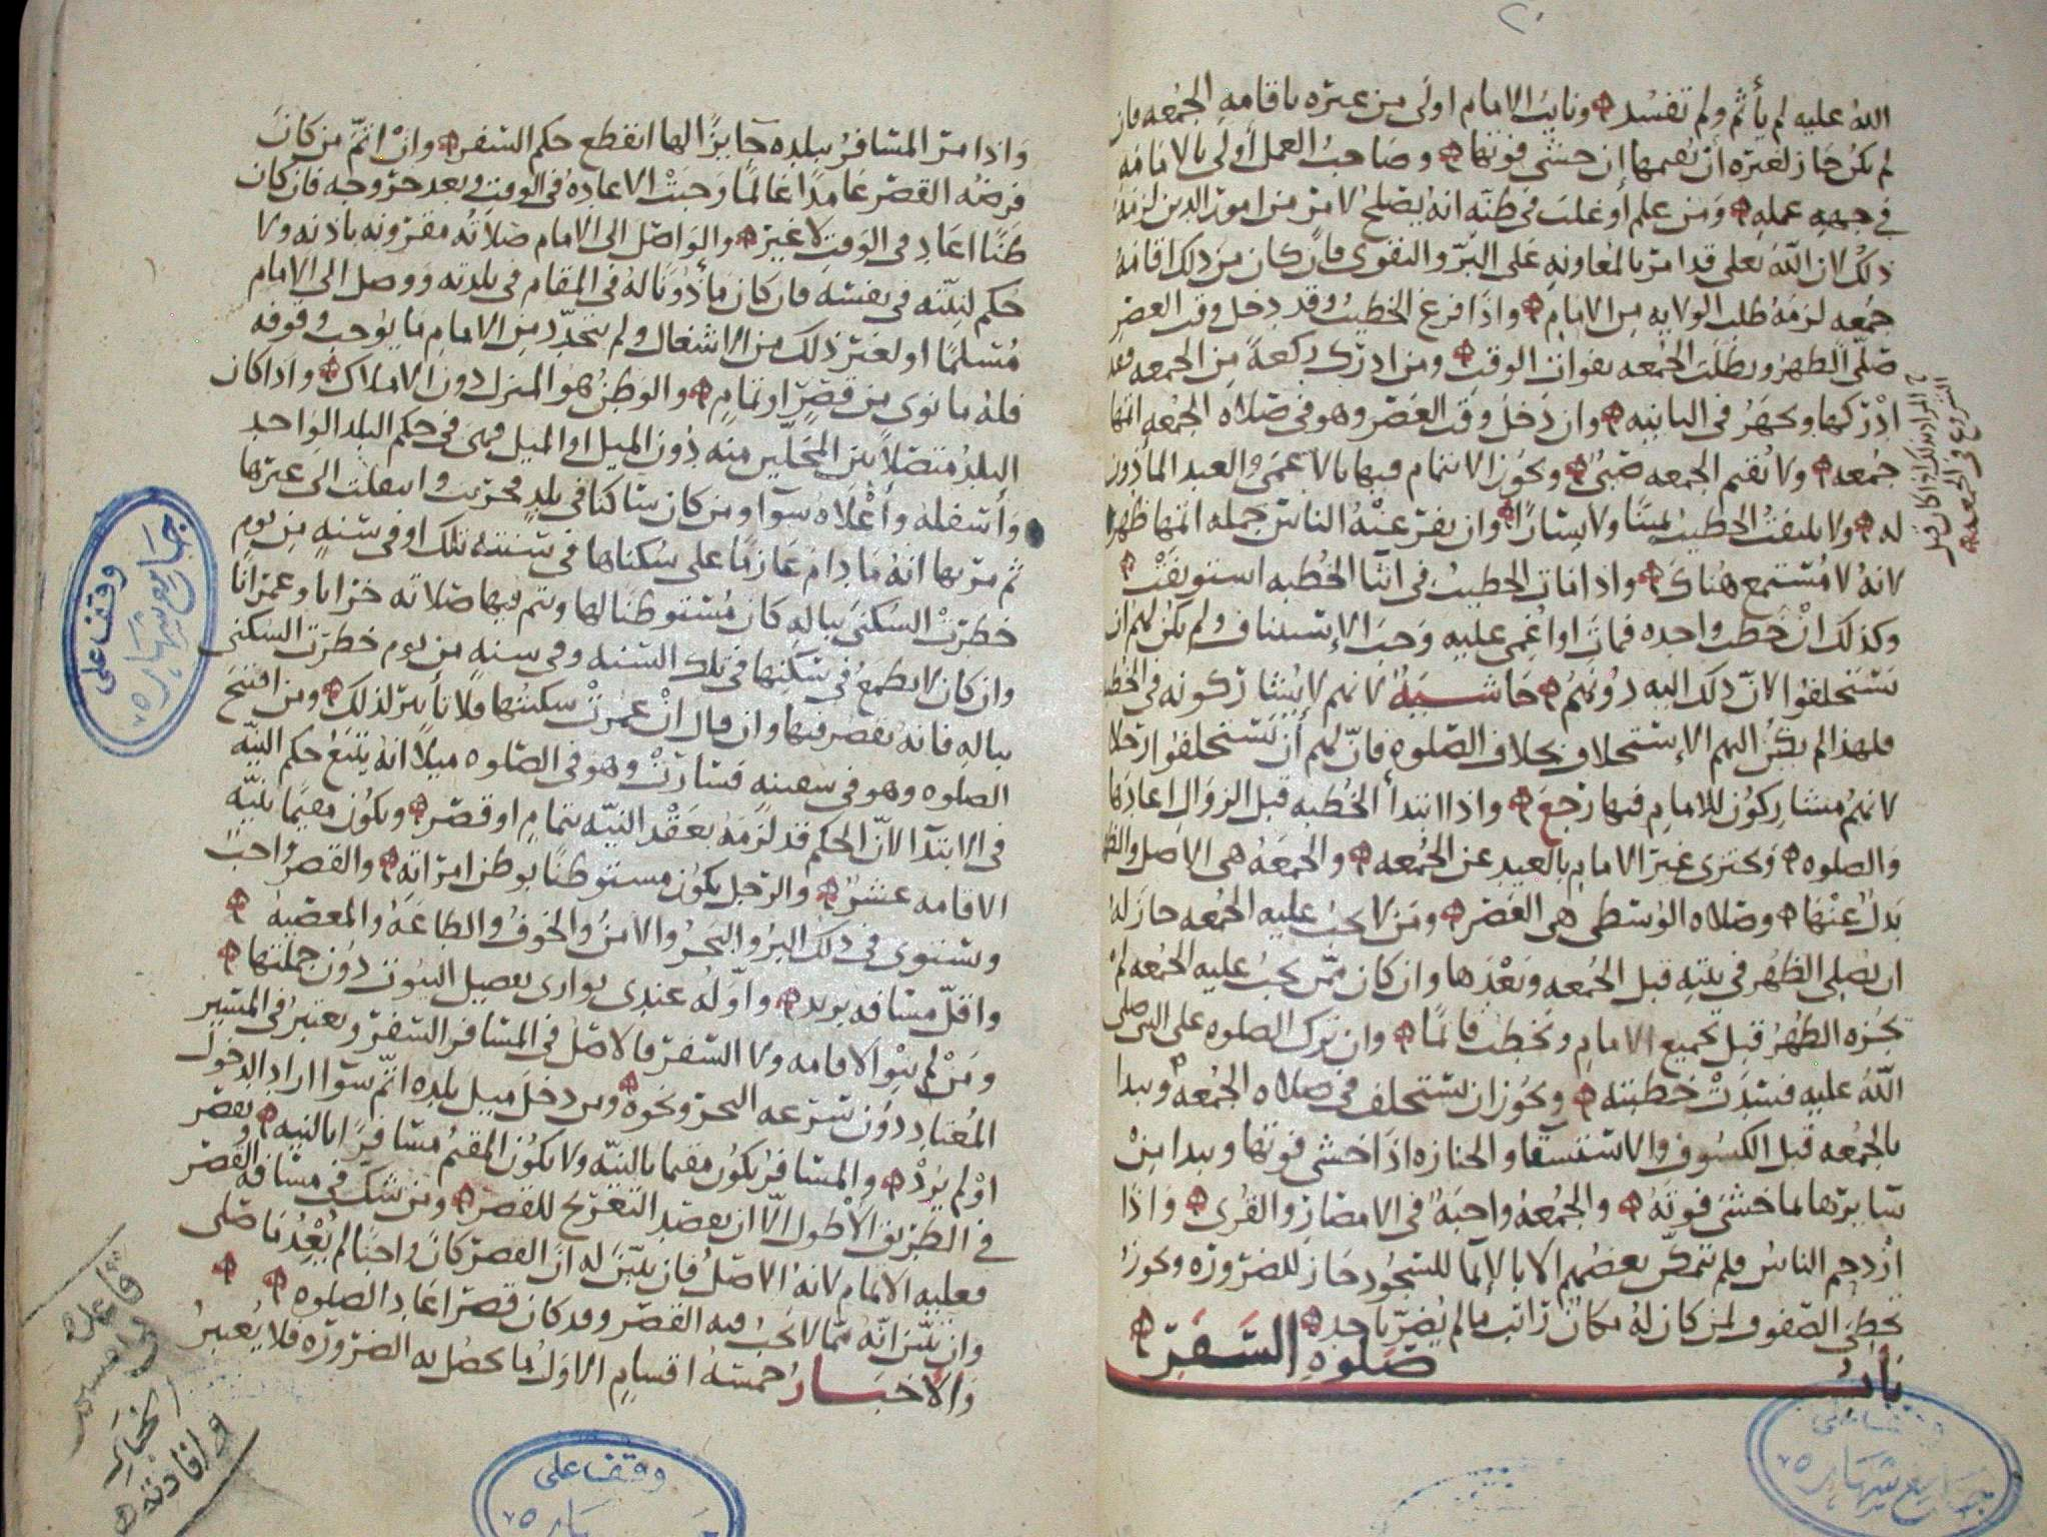 ٢٠
الله عليه لم يأثم ولم تفسد ونايب الامام اولى من غيره باقامه الجمعه فان
لم يكن جاز لغيره ان يقيمها إن خشي فوتها وصاحب العمل أولى بالامامه
في جهه عمله ومن علم او غلب في ظنه انه يصلح لامر من امور الدين لزمه
ذلك لان الله تعلى قد امر بالمعاونه على البر والتقوى فان كان من ذلك اقامه
جمعه لزمه طلب الولايه من الامام واذا فرغ الخطيب وقد دخل وقت العصر
صلى الظهر وبطلت الجمعه بفوات الوقت ومن ادرك ركعة من الجمعه فقد
ادركها ويجهر في الثانيه وان دخل وقت العصر وهو في صلاه الجمعه اتمها
جمعه ولا يقيم الجمعه صبي ويجوز الائتمام فيها بالاعمى والعبد المأذون
له ولا يلتفت الخطيب يمينا ولا يسارا وان نفر عنه الناس جمله اتمها ظهرا
لانه لا مستمع هناك واذا مات الخطيب في اثنا الخطبه استونفت
وكذلك ان خطب واحده فمات او اغمي عليه وجب الاستيناف ولم يكن لهم ان
يستخلفوا لان ذلك اليه دونهم حاشيه لانهم لا يشاركونه في الخطبه
فلهذا لم يكن اليهم الاستخلاف بخلاف الصلوه فان لهم أن يستخلفوا رجلا
لانهم مشاركون للامام فيها رجع واذا ابتدأ الخطبه قبل الزوال اعادها
والصلوه ويجتزى غير الامام بالعيد عن الجمعه والجمعه هي الاصل والظهر
بدل عنها وصلاه الوسطى هي العصر ومن لا يجب عليه الجمعه جاز له
ان يصلي الظهر في بيته قبل الجمعه وبعدها وان كان ممن يجب عليه الجمعه لم
يجزه الظهر قبل تجميع الامام ويخطب قائما وان ترك الصلوه على النبي صلى
الله عليه فسدت خطبته ويجوز ان يستخلف في صلاه الجمعه ويبدا
بالجمعه قبل الكسوف والاستسقا والجنازه اذا خشي فوتها ويبدا من
سايرها لما خشي فوته والجمعه واجبه في الامصار والقرى واذا
ازدحم الناس فلم يتمكن بعضهم الا بالايما للسجود جاز للضروره ويجوز
تخطي الصفوف لمن كان له مكان راتب مالم يضر باحد
باب صلوه السفر
المراد بذلك اذا كان قبل
الشروع في الجمعه
واذا مر المسافر ببلده جايزا لها انقطع حكم السفر وان اتم من كان
فرضه القصر عامدا عالما وجبت الاعاده في الوقت وبعد خروجه فان كان
ظنا اعاد في الوقت لا غير والواصل الى الامام صلاته مقرونه باذنه ولا
حكم لنيته في نفسه فان كان مأذونا له في المقام في بلدته ووصل الى الامام
مسلما او لغير ذلك من الاشغال ولم يتجدد من الامام ما يوجب وقوفه
فله ما نوى من قصر او تمام والوطن هو المنزل دون الاملاك واذا كان
البلد متصلا بين المحلين منه دون الميل او الميل فهي في حكم البلد الواحد
وأسفله وأعلاه سوآ ومن كان ساكنا في بلد فخربت وانتقلت الى غيرها
ثم مر بها انه ما دام عازما على سكناها في سنته تلك او في سنه من يوم
خطرت السكنى بباله كان مستوطنا لها ويتم فيها صلاته خرابا وعمرانا
وان كان لا يطمع في سكنها في تلك السنه وفي سنه من يوم خطرت السكنى
بباله فانه يقصر فيها وان قال ان عمرت سكنتها فلا تأثير لذلك ومن افتتح
الصلوه وهو في سفينه فسارت وهو في الصلوه ميلا انه يتبع حكم النيه
في الابتدآ لان الحكم قد لزمه بعقد النيه بتمام او قصر ويكون مقيما بنيه
الاقامه عشرا والرجل يكون مستوطنا بوطن امراته والقصر واجب
ويستوى في ذلك البر والبحر والامن والخوف والطاعة والمعصيه
واقل مسافه بريد واوله عندى توارى تفصيل البيوت دون جملتها
ومن لم ينو الاقامه ولا السفر فالاصل في المسافر السفر ويعتبر في المسير
المعتاد دون سرعه البحر ونحوه ومن دخل ميل بلده اتم سوآ اراد الدخول
او لم يرد والمسافر يكون مقيما بالنيه ولا يكون المقيم مسافرا بالنيه ويقصر
في الطريق الأطول الا ان يقصد التعريج للقصر ومن شك في مسافه القصر
فعليه الاتمام لانه الاصل فان تبين له ان القصر كان واجبا لم يعد ما صلى
وان تبين انه مما لا يجب فيه القصر وقد كان قصر اعاد الصلوه
والاخبار خمسه اقسام الاول ما يحصل به الضروره فلا يعتبر
وقف على
جامع شهاره
٧٥
وقف على
٧٥
وقف على
جامع شهاره
٧٥
الخبار
وافادته